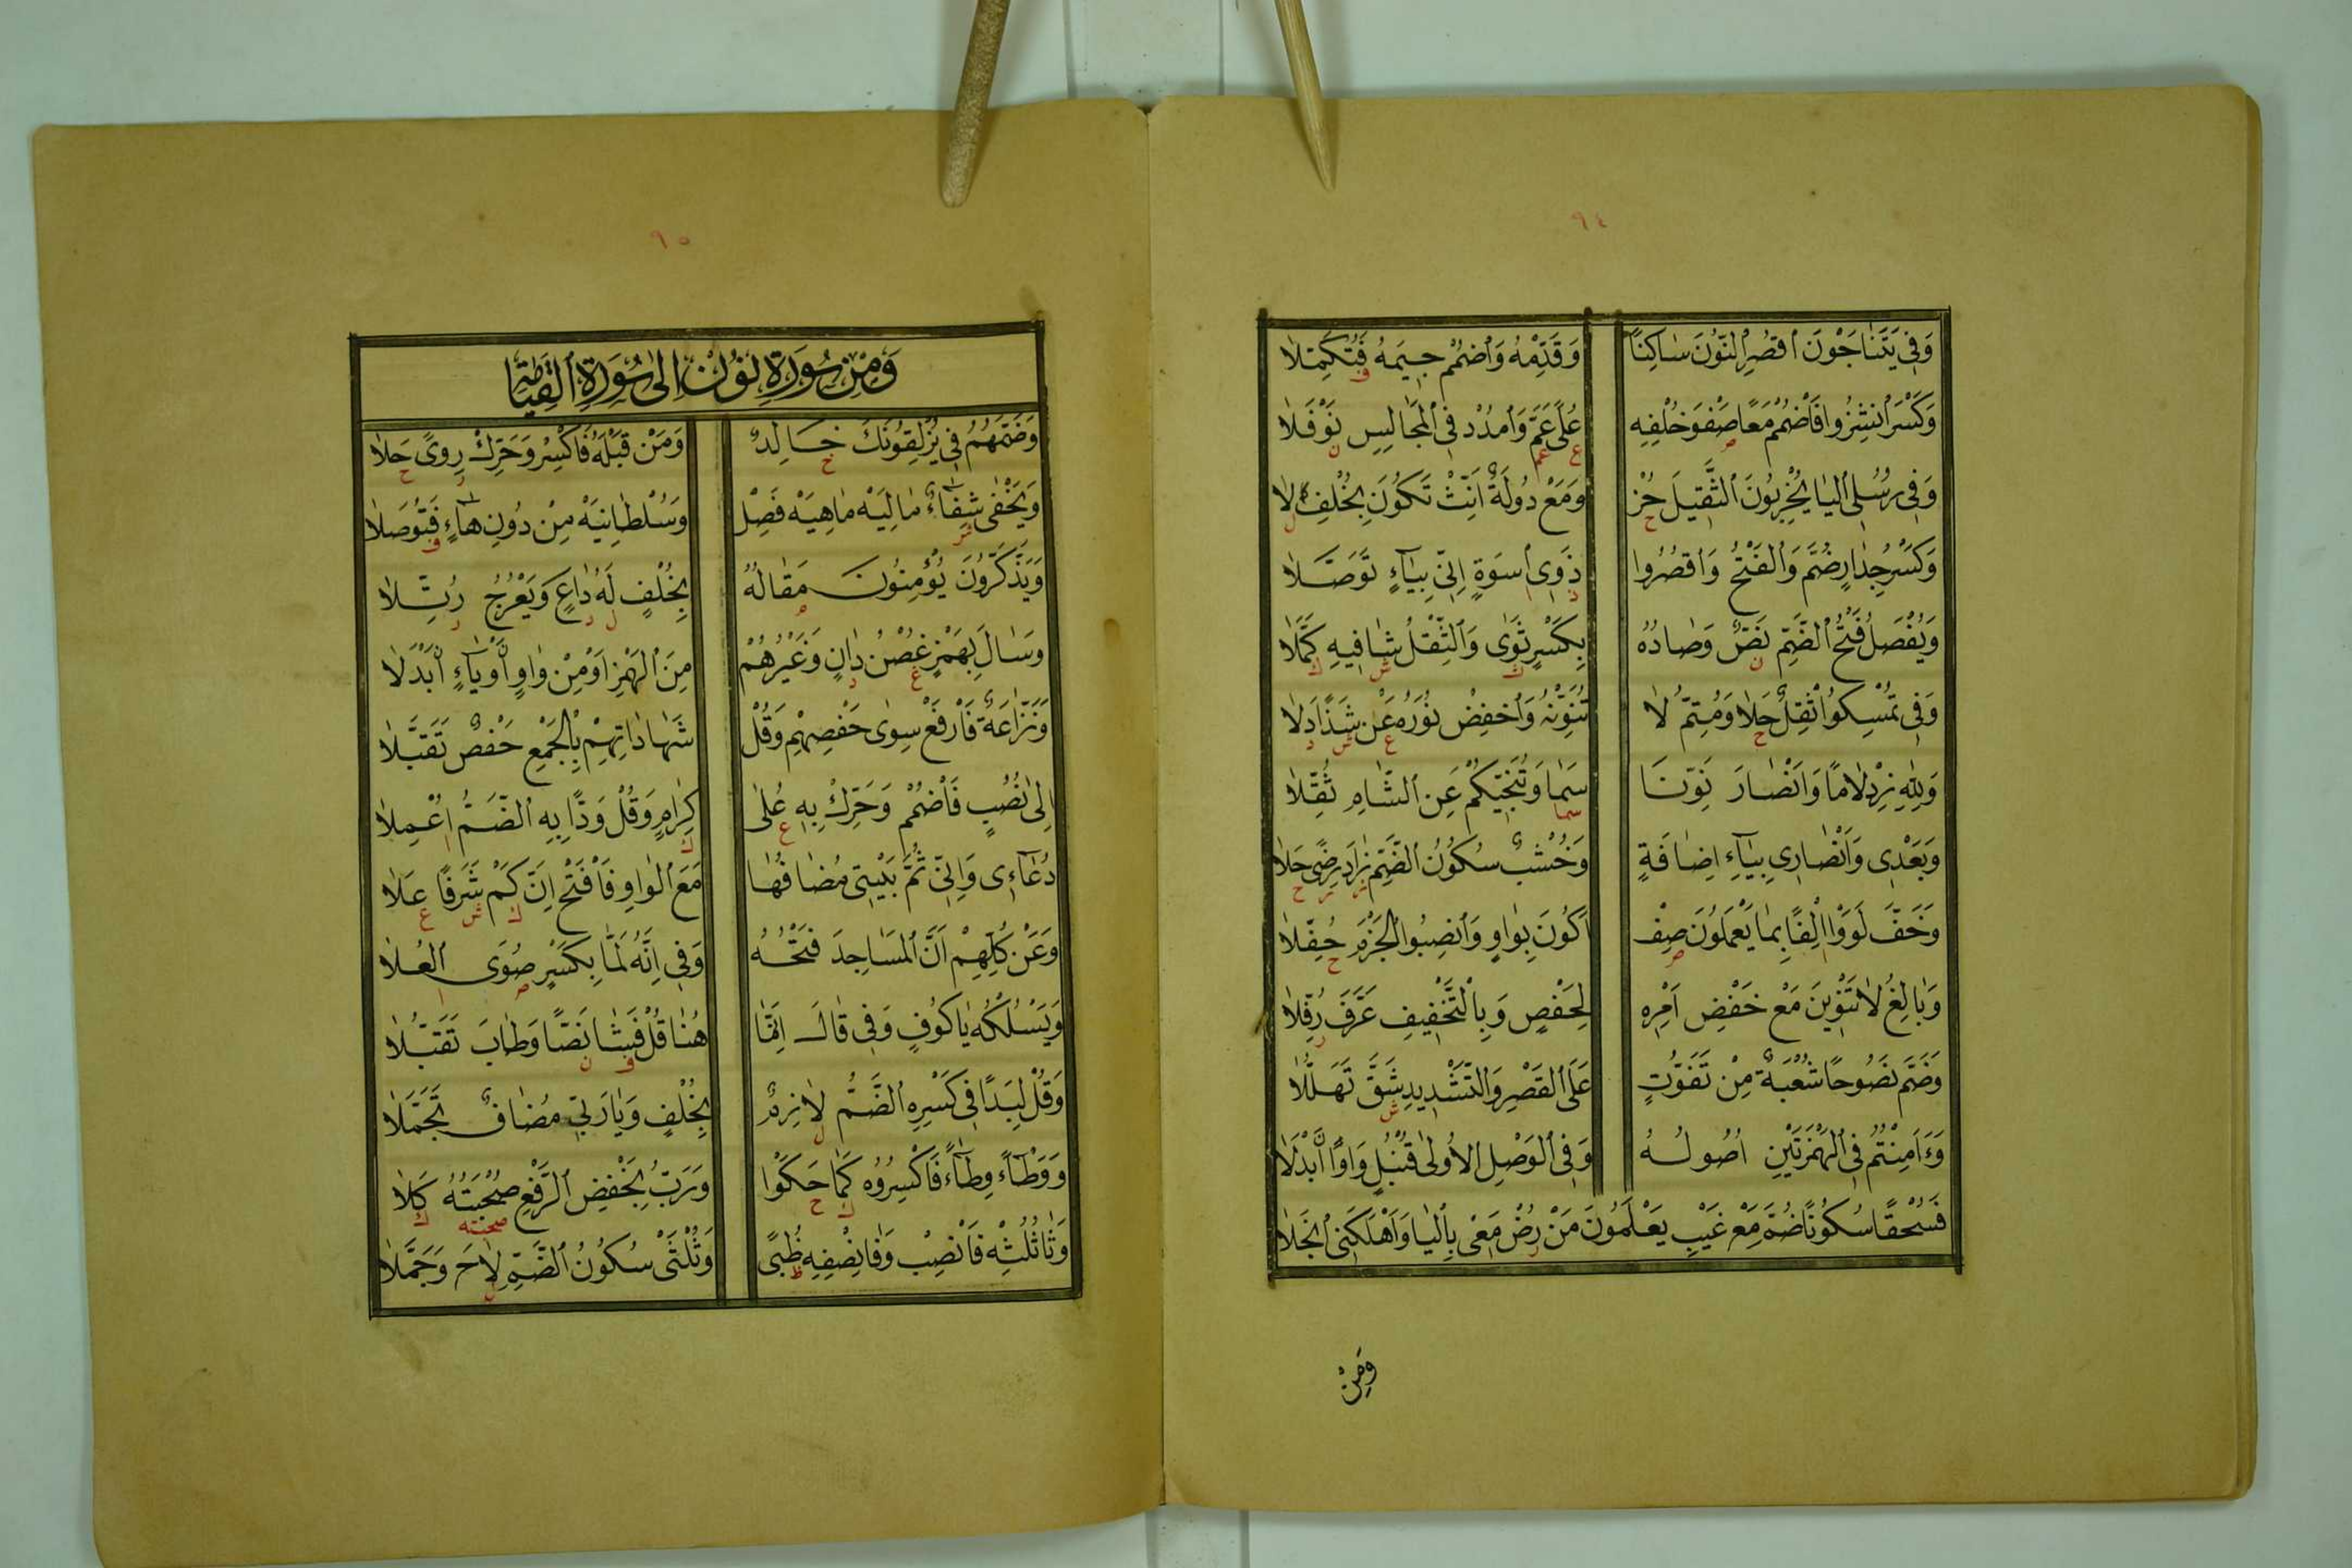 ٩٤
وَفِي يَتَنَاجَوْنَ اقْصُرِ النُّونَ سَاكِنًا وَقَدِّمْهُ وَاضْمُمْ جِيمَهُ فَتُكَمِّلَا
وَكَسْرَ انْشِزُوا فَاضْمُمْ مَعًا صَفْوَ خُلْفِهِ عُلًى عَمَّ وَامْدُدْ فِي الْمَجَالِسِ نَوْفَلَا
وَفِي رُسُلِي الْيَا يُخْرِبُونَ الثَّقِيلَ حُزْ وَمَعْ دُولَةً أَنِّثْ تَكُونَ بِخُلْفِ لَا
وَكَسْرَ جِدَارٍ ضُمَّ وَالْفَتْحُ وَاقْصُرُوا ذَوِي اسْوَةٍ إِنِّي بِيَاءٍ تَوَصَّلَا
وَيُفْصَلُ فَتْحُ الضَّمِّ نَصٌّ وَصَادُهُ بِكَسْرٍ ثَوَى وَالثِّقْلُ شَافِيهِ كَمَّلَا
وَفِي تُمْسِكُوا ثِقْلٌ حَلَا وَمُتِمُّ لَا تُنَوِّنْهُ وَاخْفِضْ نُورَهُ عَنْ شَذًا دَلَا
وَلِلَّهِ زِدْ لَامًا وَأَنْصَارَ نَوِّنَا سَمَا وَتُنَجِّيكُمْ عَنِ الشَّامِ ثُقِّلَا
وَبَعْدِي وَأَنْصَارِي بِيَاءِ إِضَافَةٍ وَخُشْبٌ سُكُونُ الضَّمِّ زَادَ رِضًى حَلَا
وَخَفَّ لَوَوْا إِلْفًا بِمَا يَعْمَلُونَ صِفْ أَكُونَ بِوَاوٍ وَانْصِبُوا الْجَزْمَ حُفَّلَا
وَبَالِغُ لَا تَنْوِينَ مَعْ خَفْضِ أَمْرِهِ لِحَفْصٍ وَبِالتَّخْفِيفِ عَرَّفَ رُفِّلَا
وَضَمَّ نَصُوحًا شُعْبَةٌ مِنْ تَفَوُّتٍ عَلَى الْقَصْرِ وَالتَّشْدِيدِ شَقَّ تَهَلُّلَا
وَءَامِنْتُمُ فِي الْهَمْزَتَيْنِ أُصُولُهُ وَفِي الْوَصْلِ الْأُولَى قُنْبُلٍ وَاوًا ابْدَلَا
فَسُحْقًا سُكُونًا ضُمَّ مَعْ غَيْبِ يَعْلَمُونَ مَنْ رُضْ مَعِي بِالْيَا وَأَهْلَكَنِي انْجَلَا
وَمِنْ
٩٥
وَمِنْ سُورَةِ نُونْ إِلَى سُورَةِ الْقِيَامَةِ
وَضَمُّهُمُ فِي يُزْلِقُونَكَ خَالِدٌ وَمَنْ قَبْلَهُ فَاكْسِرْ وَحَرِّكْ رِوًى حَلَا
وَيَخْفَى شِفَاءٌ مَالِيَهْ مَاهِيَهْ فَصِلْ وَسُلْطَانِيَهْ مِنْ دُونِ هَاءٍ فَتُوصَلَا
وَيَذَّكَّرُونَ يُؤْمِنُونَ مَقَالُهُ بِخُلْفٍ لَهُ دَاعٍ وَيَعْرُجُ رُتِّلَا
وَسَالَ بِهَمْزٍ غُصْنُ دَانٍ وَغَيْرُهُمْ مِنَ الْهَمْزِ أَوْ مِنْ وَاوٍ أَوْ يَاءٍ ابْدَلَا
وَنَزَّاعَةً فَارْفَعْ سِوَى حَفْصِهِمْ وَقُلْ شَهَادَاتِهِمْ بِالْجَمْعِ حَفْصٌ تَقَبَّلَا
إِلَى نُصُبٍ فَاضْمُمْ وَحَرِّكْ بِهِ عُلَى كِرَامٍ وَقُلْ وَدًّا بِهِ الضَّمُّ أُعْمِلَا
دُعَاءِي وَإِنِّي ثُمَّ بَيْتِي مُضَافُهَا مَعَ الْوَاوِ فَافْتَحْ إِنَّ كَمْ شَرَفًا عَلَا
وَعَنْ كُلِّهِمْ أَنَّ الْمَسَاجِدَ فَتْحُهُ وَفِي إِنَّهُ لَمَّا بِكَسْرٍ صُوَى الْعُلَا
وَيَسْلُكْهُ يَا كُوفٍ وَفِي قَالَ إِنَّمَا هُنَا قُلْ فَشَا نَصًّا وَطَابَ تَقَبُّلَا
وَقُلْ لِبَدًا فِي كَسْرِهِ الضَّمُّ لَازِمٌ بِخُلْفٍ وَيَا رَبِّي مُضَافٌ تَجَمَّلَا
وَوَطْأً وِطَاءً فَاكْسِرُوهُ كَمَا حَكَوْا وَرَبُّ بِخَفْضِ الرَّفْعِ صُحْبَتُهُ كَلَا
وَثَا ثُلْثِهِ فَانْصِبْ وَفَا نِصْفِهِ ظُبًى وَثُلْثَيْ سُكُونُ الضَّمِّ لَاحَ وَجَمَّلَا